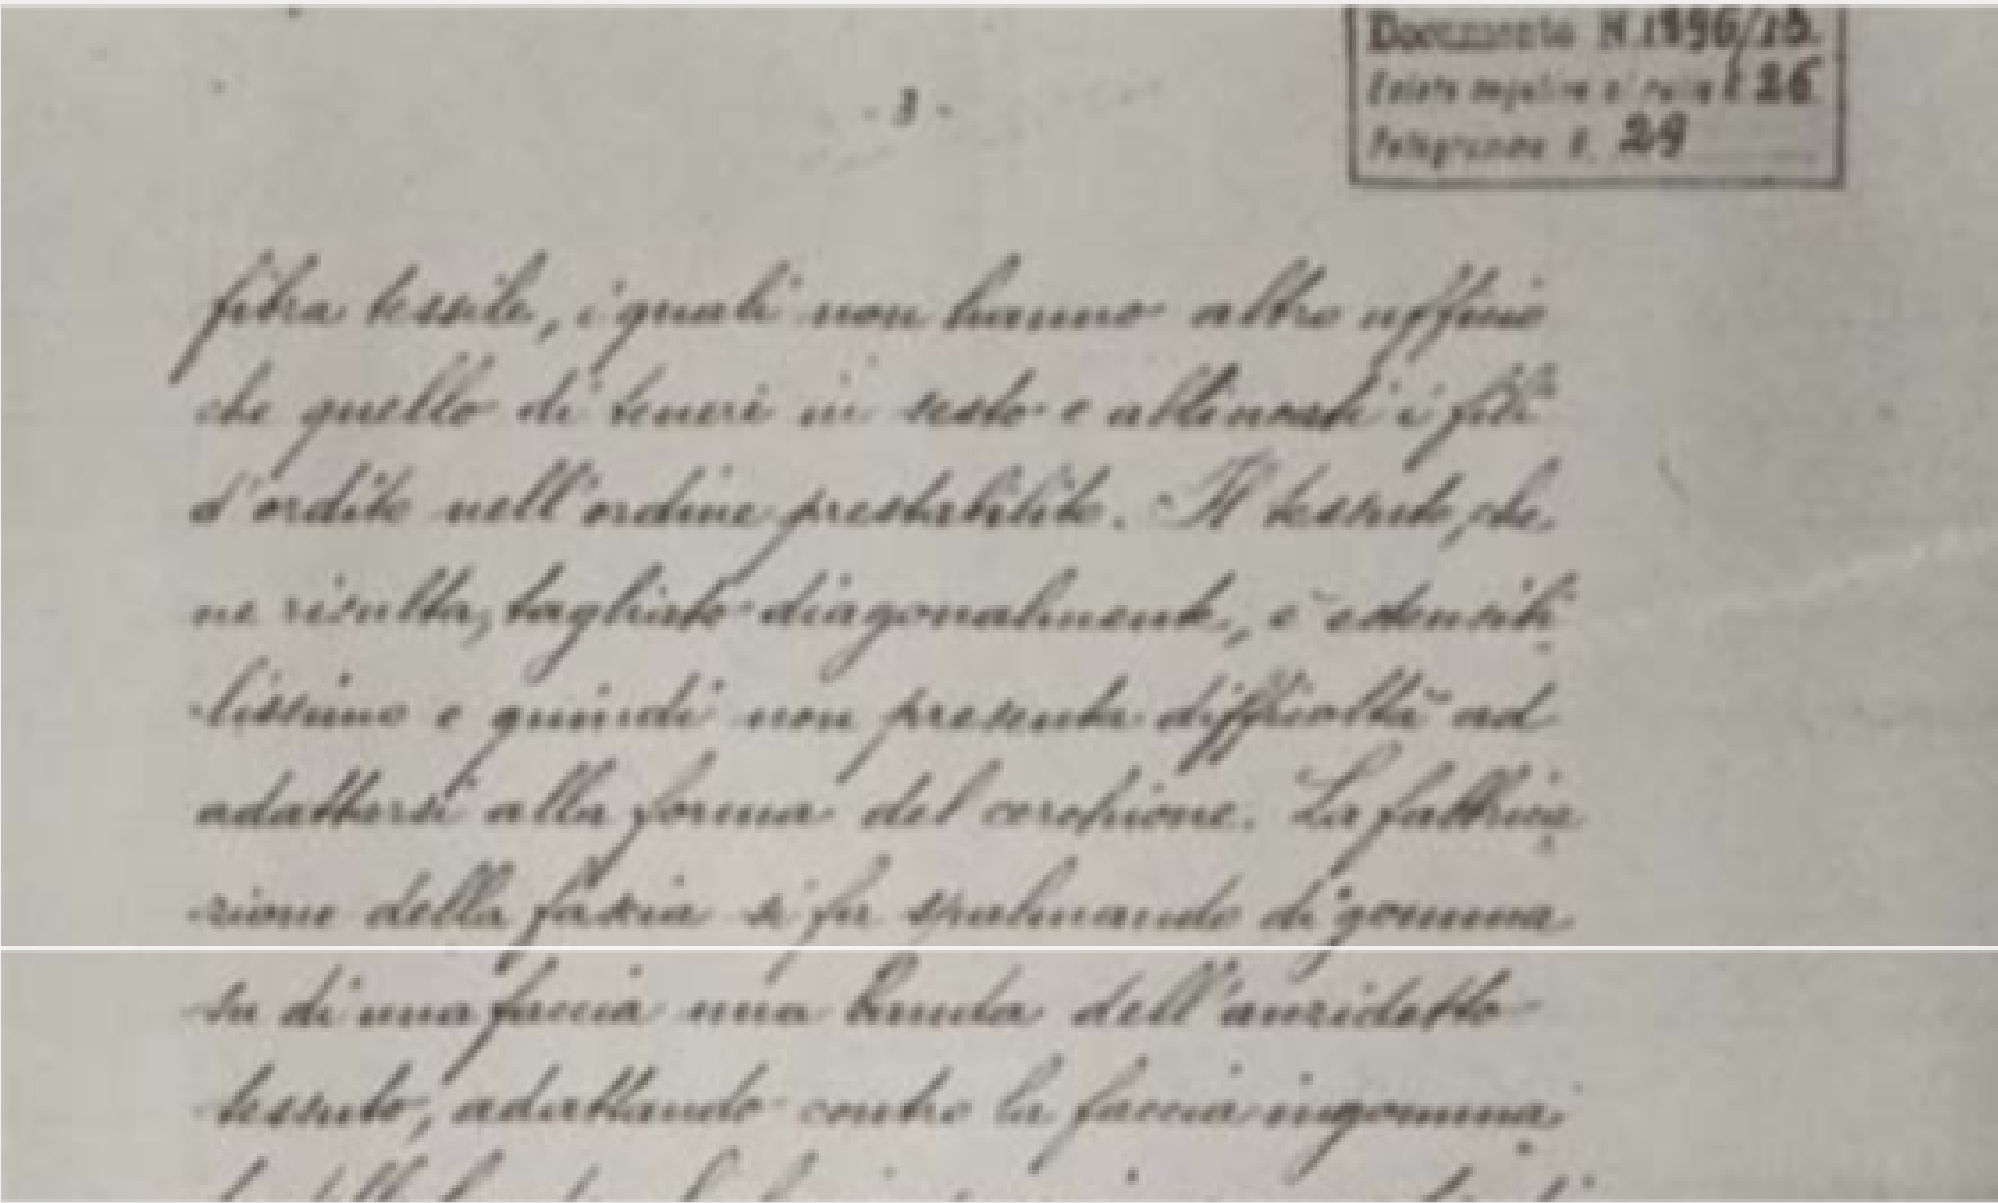 Documento N. 1896/13.
Esiste negativo al rullo N. 26
Fotogramma N. 29
- 3 -
fibra tessile, i quali non hanno altro ufficio
che quello di teneri in sesto e allineati i fili
d'ordito nell'ordine prestabilito. Il tessuto, che
ne risulta, tagliato diagonalmente, è estensibi
lissimo e quindi non presenta difficoltà ad
adattarsi alla forma del cerchione. La fabbrica
zione della fascia si fa spalmando di gomma
su di una faccia una banda dell'anzidetto
tessuto, adattando contro la faccia ingomma